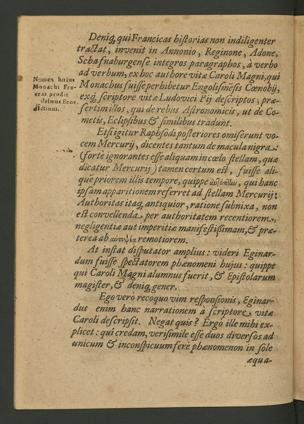 Deniq, qui Francicas historias non indiligenter
tractat, invenit in Annonio, Reginone, Adone,
Schafnaburgense integros paragraphos, à verbo
ad verbum, ex hoc authore vitæ Caroli Magni, qui
Monachus fuisse perhibetur Engolismensis Cœnobij,
exq, scriptore vitæ Ludovici Pij descriptos, præ-
sertim illos, qui de rebus Astronomicis, ut de Co-
metis, Eclipsibus & similibus tradunt.
Nomen huius
Monachi Fre-
erus prodit
disertim.
Etsi igitur Rapsodi posteriores omiserunt vo-
cem Mercurij, dicentes tantum de macula nigra
(forte ignorantes esse aliquam in cœlo stellam, quæ
dicatur Mercury) tamen certum est, fuisse ali-
que priorem illis tempore, quippe qui hanc
ipsam apparitionem referret ad stellam Mercurij:
Authoritas itaq, antiquior, ratione subnixa, non
est convellenda per authoritatem recentiorem,
negligentiæ aut imperitiæ manifestissimam, & præ-
terea ab remotiorem.
At instat disputator amplius: videri Eginar-
dum fuisse spectatorem phænomeni hujus: quippe
qui Caroli Magni alumnus fuerit, & Epistolarum
magister, & deniq, gener.
Ego verò recoquo vim responsionis, Eginar-
dus enim hanc narrationem à scriptore vitæ
Caroli descripsit. Negat quis? Ergò ille mihi ex-
plicet: qui credam, verisimile esse duos diversos ad
unicum & inconspicuum fere phænomenon in sole
æqua-